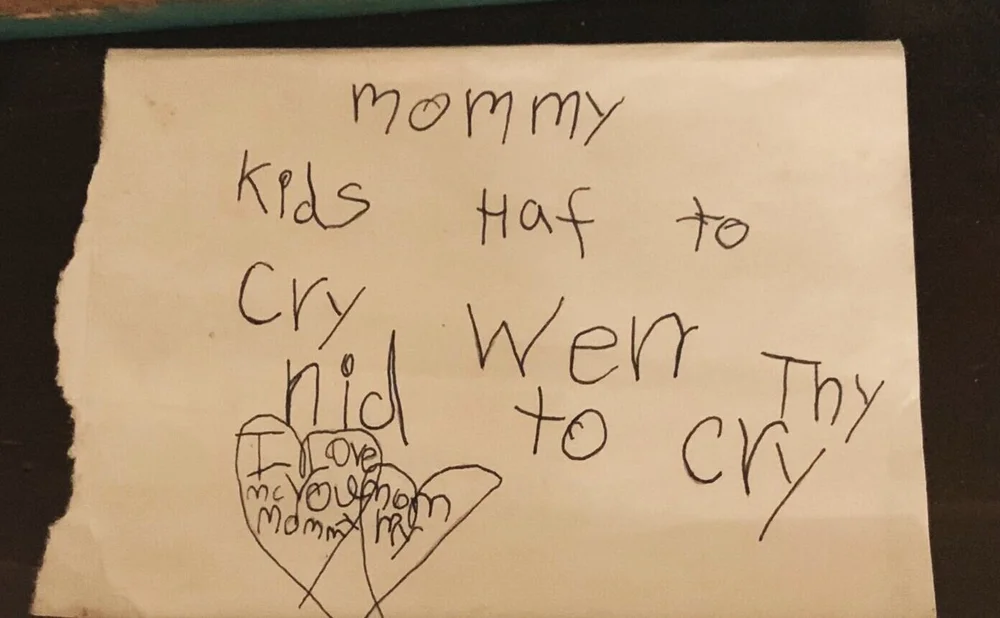 mommy
Kids Haf to
Cry Wen Thy
nid to cry
I Love
You mom
Mommy My